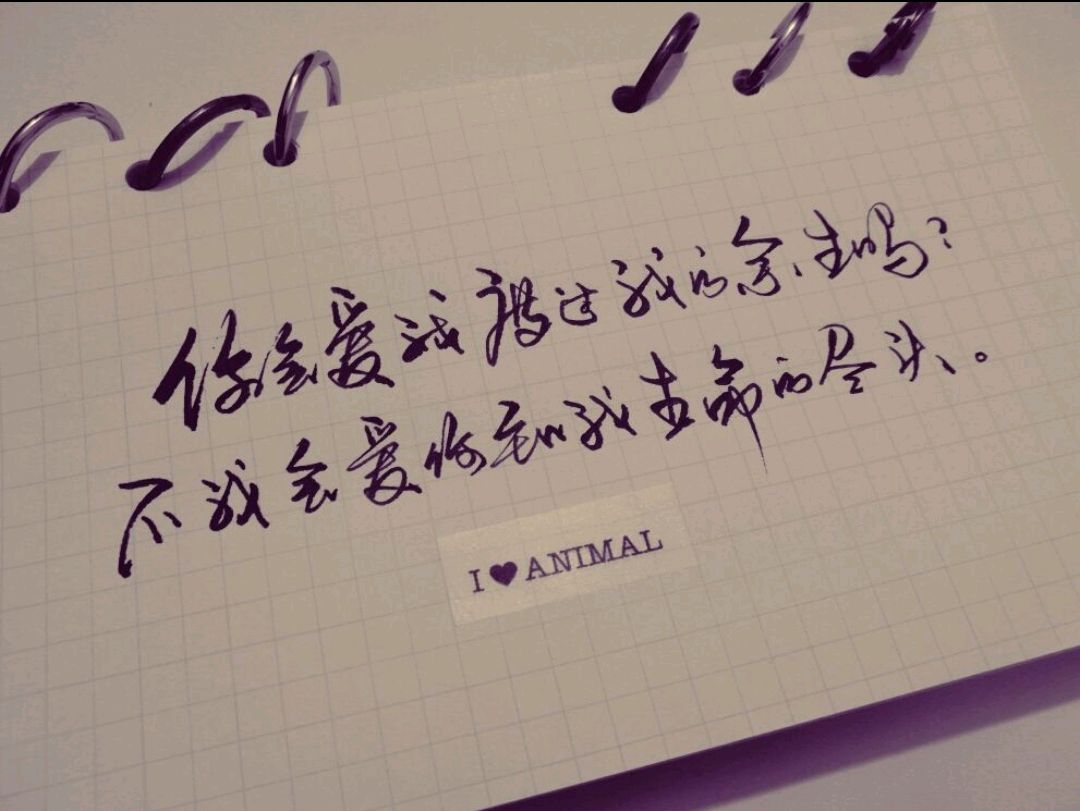 你会爱我度过我的余生吗?
不我会爱你到我生命的尽头。
I ♥ ANIMAL